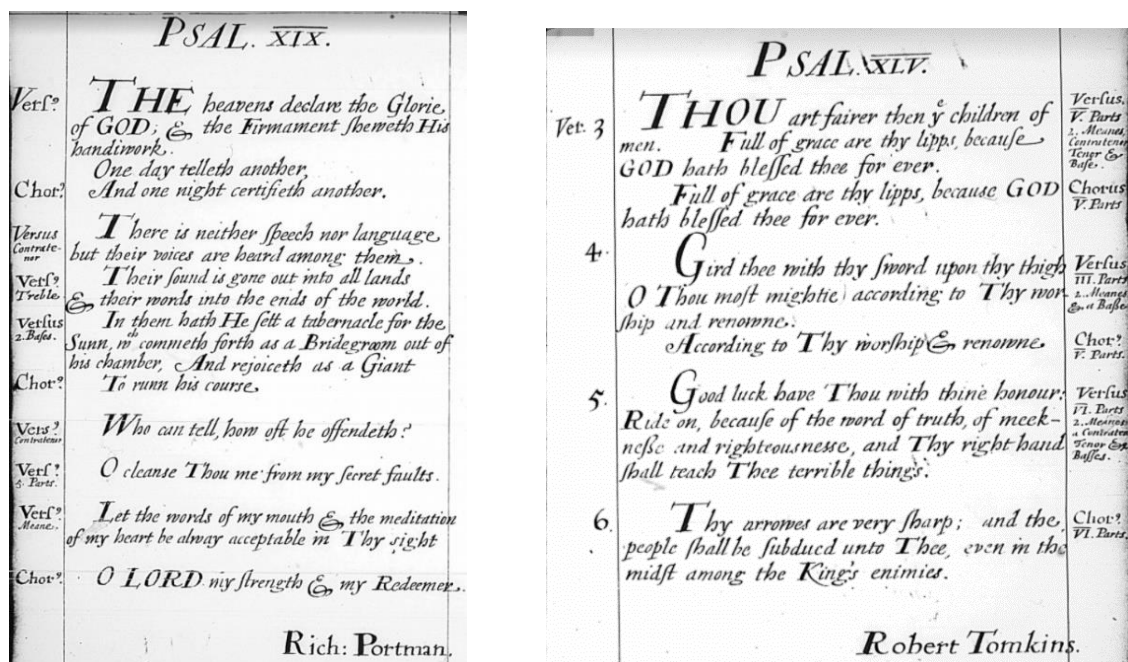 PSAL. XIX.
Versꝰ THE heavens declare the Glorie
of GOD; & the Firmament sheweth His
handiwork.
One day telleth another,
Chorꝰ And one night certifieth another.
Versus There is neither speech nor language
Contrate-
nor but their voices are heard among them.
Versꝰ Their sound is gone out into all lands
Treble & their words into the ends of the world.
Versus In them hath He sett a tabernacle for the
2. Bases. Sunn, wᶜʰ commeth forth as a Bridegroom out of
his chamber, And rejoiceth as a Giant
Chorꝰ To runn his course
Versꝰ Who can tell, how oft he offendeth?
Contratenor
Versꝰ O cleanse Thou me from my secret faults.
5. Parts.
Versꝰ Let the words of my mouth & the meditation
Meane. of my heart be alway acceptable in Thy sight
Chorꝰ. O LORD my strength & my Redeemer.
Rich: Portman.
PSAL. XLV.
Ver. 3 THOU art fairer then yᵉ children of
men. Full of grace are thy lipps, because
GOD hath blessed thee for ever.
Full of grace are thy lipps, because GOD
hath blessed thee for ever.
Versus.
V. Parts
2. Meanes,
Contratenor
Tenor &
Base.
Chorus
V. Parts
4. Gird thee with thy sword upon thy thigh
O Thou most mightie according to Thy wor-
ship and renowne.
According to Thy worship & renowne
Versus
III. Parts
2. Meanes
& a Basse
Chorꝰ
V. Parts.
5. Good luck have Thou with thine honour:
Ride on, because of the word of truth, of meek-
nesse and righteousnesse, and Thy right hand
shall teach Thee terrible things.
Versus
VI. Parts
2. Meanes
a Contraten
Tenor &
Basses.
6. Thy arrowes are very sharp; and the
people shall be subdued unto Thee, even in the
midst among the King's enimies.
Chorꝰ
VI. Parts.
Robert Tomkins.